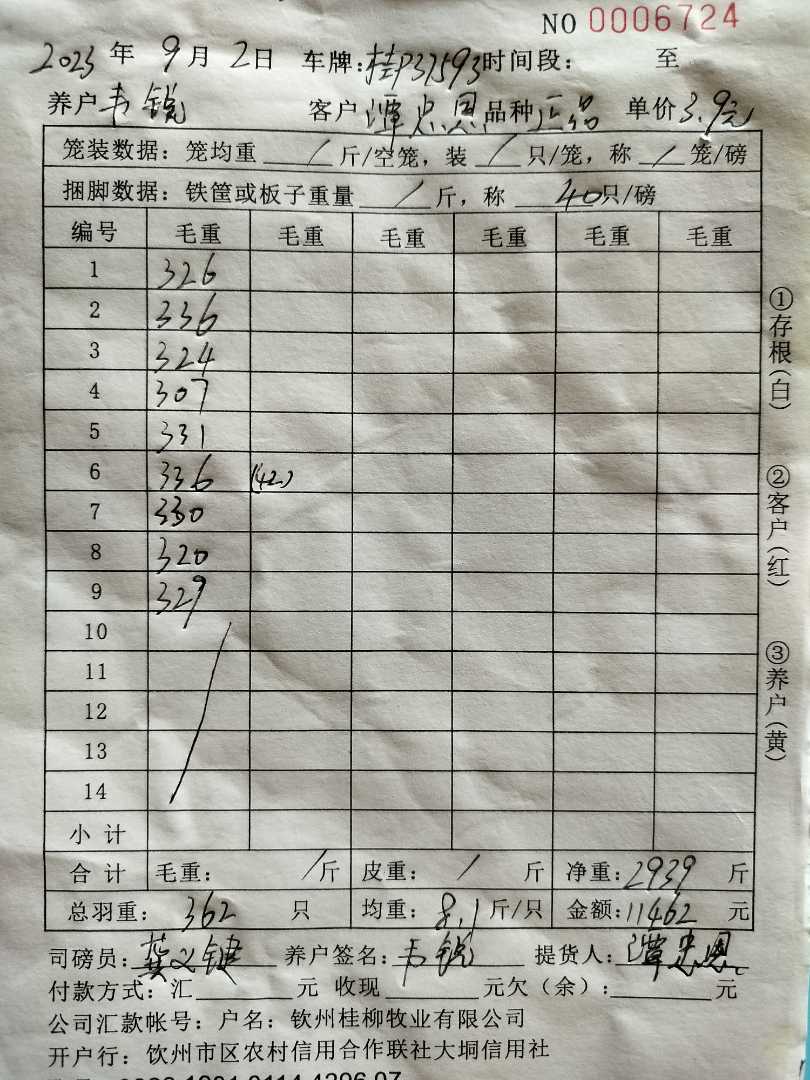 NO 0006724
2023 年 9 月 2 日 车牌:桂P37593 时间段: 至
养户 韦锐 客户 谭忠恩 品种 正品 单价 3.9元
笼装数据: 笼均重 / 斤/空笼, 装 / 只/笼, 称 / 笼/磅
捆脚数据: 铁筐或板子重量 / 斤, 称 40只/磅
编号 毛重 毛重 毛重 毛重 毛重 毛重
1 326
2 336
3 324
4 307
5 331
6 336 (42)
7 330
8 320
9 329
10
11
12
13
14
小 计
合 计 毛重: / 斤 皮重: / 斤 净重: 2939 斤
总羽重: 362 只 均重: 8.1 斤/只 金额: 11462 元
司磅员: 龚义键 养户签名: 韦锐 提货人: 谭忠恩
付款方式: 汇 元 收现 元欠(余): 元
公司汇款帐号: 户名: 钦州桂柳牧业有限公司
开户行: 饮州市区农村信用合作联社大垌信用社
①存根(白)
②客户(红)
③养户(黄)